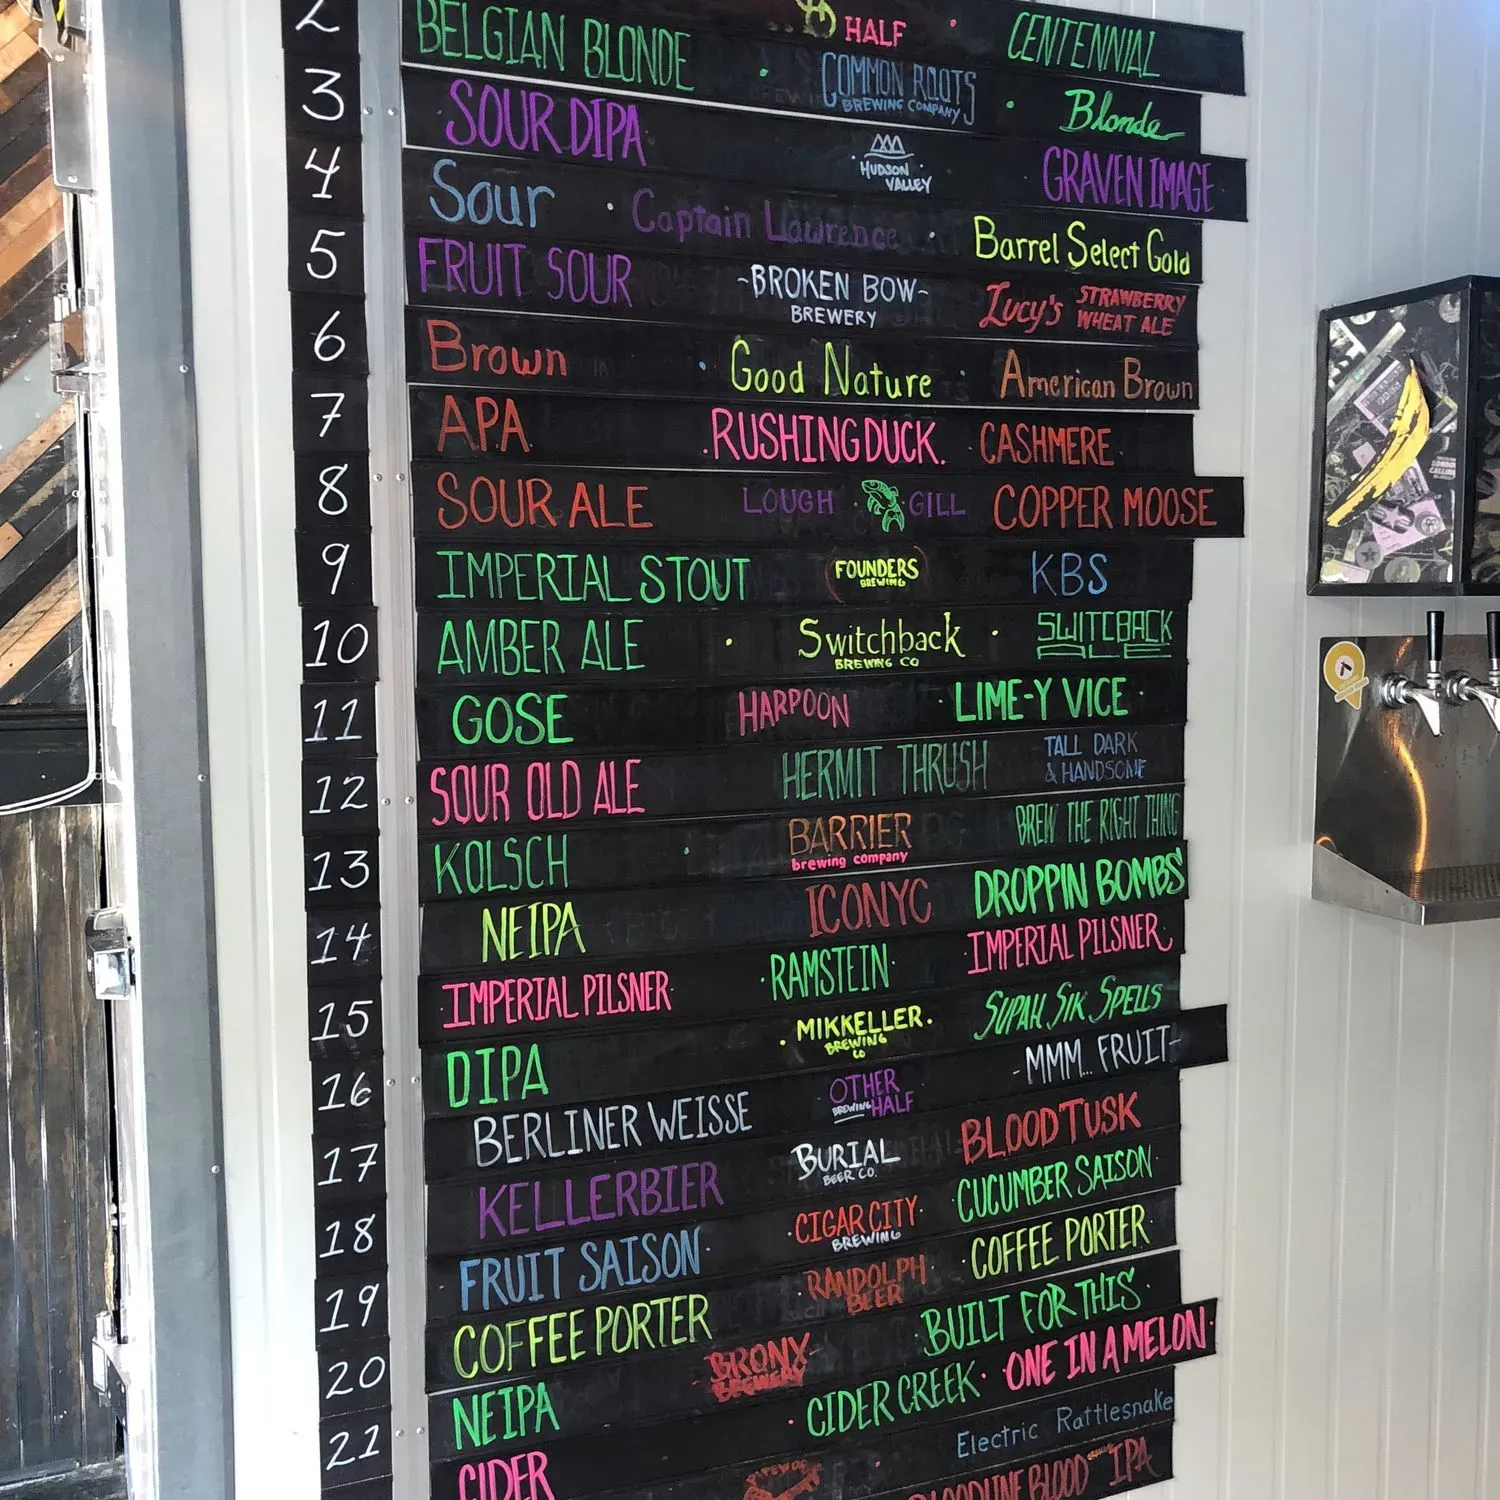 2 HALF CENTENNIAL
3 BELGIAN BLONDE COMMON ROOTS BREWING COMPANY Blonde
4 SOUR DIPA HUDSON VALLEY GRAVEN IMAGE
5 Sour Captain Lawrence Barrel Select Gold
FRUIT SOUR -BROKEN BOW- BREWERY Lucy's STRAWBERRY WHEAT ALE
6 Brown Good Nature American Brown
7 APA RUSHING DUCK CASHMERE
8 SOUR ALE LOUGH GILL COPPER MOOSE
9 IMPERIAL STOUT FOUNDERS BREWING KBS
10 AMBER ALE Switchback BREWING CO SWITCBACK ALE
11 GOSE HARPOON LIME-Y VICE
12 SOUR OLD ALE HERMIT THRUSH TALL DARK & HANDSOME
13 KOLSCH BARRIER brewing company BREW THE RIGHT THING
14 NEIPA ICONYC DROPPIN BOMBS
15 IMPERIAL PILSNER RAMSTEIN IMPERIAL PILSNER
16 DIPA MIKKELLER BREWING CO SUPAH SIK SPELLS
BERLINER WEISSE OTHER HALF BREWING MMM... FRUIT
17 KELLERBIER BURIAL BEER CO. BLOOD TUSK
18 FRUIT SAISON CIGAR CITY BREWING CUCUMBER SAISON
19 COFFEE PORTER RANDOLPH BEER COFFEE PORTER
20 NEIPA BRONX BREWERY BUILT FOR THIS
21 CIDER CIDER CREEK ONE IN A MELON
Electric Rattlesnake
BLOODLINE BLOOD IPA